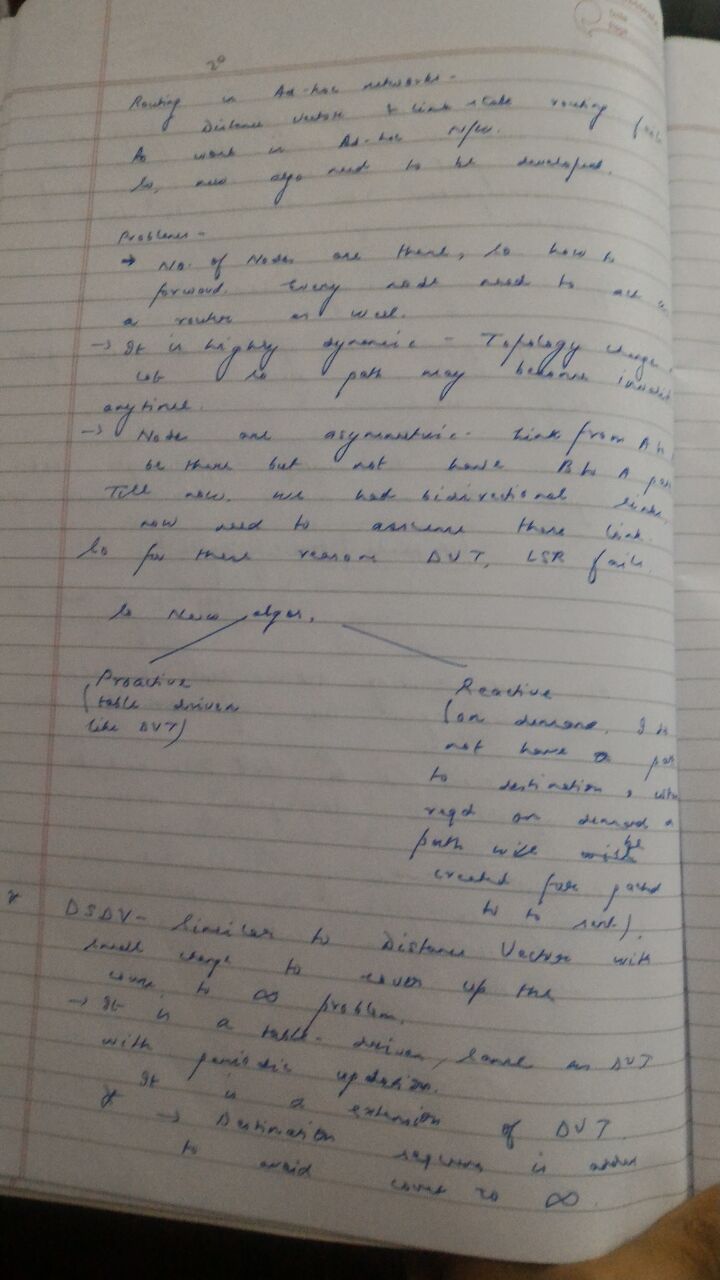 Routing in Ad-hoc networks -
Distance vector & link state routing
to work in Ad-hoc n/w.
So, new algo need to be developed.
Problems -
→ No. of Nodes are there, so how to
forward. Every node need to act
a router as well.
→ It is highly dynamic - Topology change
lot so path may become invalid
anytime.
→ Nodes are asymmetric - link from A to
be there but not have B to A
Till now, we had bidirectional links,
now need to assume these link.
So for these reasons DVT, LSR fails
So New algos.
Proactive
(table driven
like DVT)
Reactive
(on demand. I do
not have a
to destination, when
reqd on demand a
path will be
created for
to to sent).
DSDV- Similar to Distance Vector with
small change to cover up the
count to ∞ problem.
→ It is a table-driven, same as DVT
with periodic updation.
It is a extension of DVT.
→ Destination sequence is added
to avoid count to ∞.